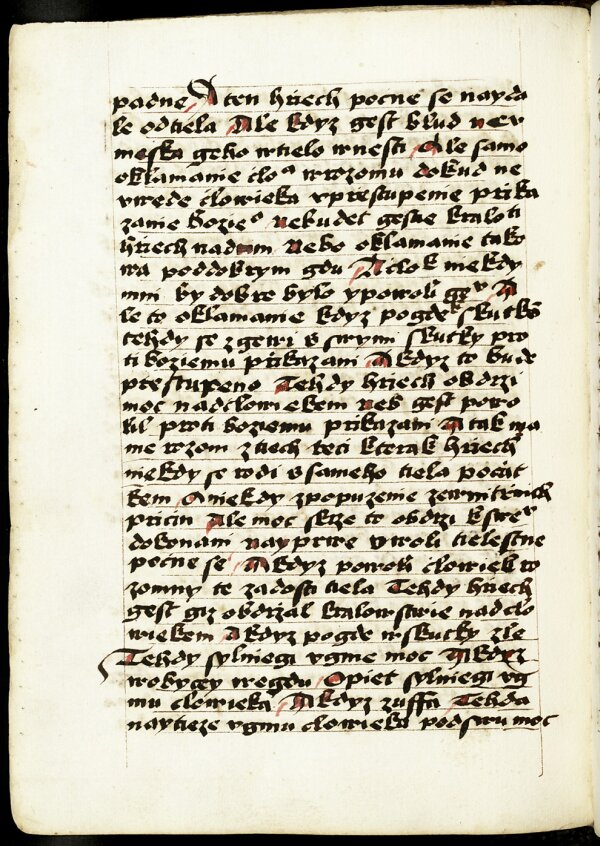 padne A ten hriech pocne se nayda
le odtiela Ale kdyz gest blud ne
meska geho wtielo wnesti Ale samo
oklamanie clo wrozomu dokud ne
wede clowieka vprestupenie prika
zanie bozie nebudet gestie kralo ti
hriech nad nebo oklamanie tako
wa poddobrym gdu A clo k niekdy
mni by dobre bylo ypowoli A
le to oklamanie kdyz pogde skutko
tehdy se zgewi vswymi skutky pro
ti boziemu prikazani A kdyz to bude
prestupeno Tehdy hriech obdrzi
moc nadclowiekem neb gest powo
lil proti boziemu prikazani A tak ma
me rozom z tiech reci kterak hriech
niekdy se rodi vsameho tiela pocat
kem A niekdy zpopuzenie zewnitrnich
pricin Ale moc skrze to obdrzi
dokonani nayprwe vwoli tielestne
pocne se A kdyz powoli clowiek ro
zomny te zadosti tiela Tehdy hriech
gest giz obdrzal kralowstwie nadclo
wiekem A kdyz pogde wskutky zle
Tehdy sylniegi vgme moc A kdyz
wobyczey wegdu Opiet sylniegi vg
mu clowieka A kdyz zuffa Tehda
naytieze vgmu clowieka podswu moc